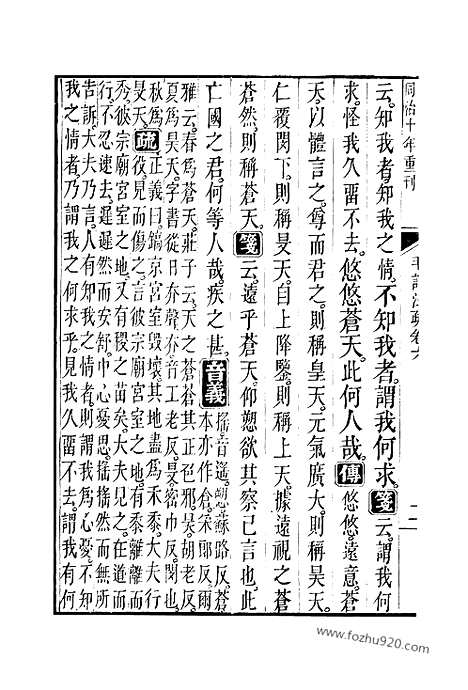 同治十年重刊
毛詩注疏卷六 二
云知我者知我之情不知我者謂我何求。箋云謂我何
求怪我久畱不去悠悠蒼天此何人哉。傳悠悠遠意蒼
天以體言之尊而君之則稱皇天元氣廣大則稱昊天
仁覆閔下則稱旻天自上降鑒則稱上天據遠視之蒼
蒼然則稱蒼天。箋云遠乎蒼天仰愬欲其察己言也此
亡國之君何等人哉疾之甚。音義
搖音遙愬蘇路反蒼
本亦作倉采郎反爾
雅云春爲蒼天莊子云天之蒼蒼其正色邪昊胡老反
夏爲昊天字書從日夰聲夰音工老反旻密巾反閔也
秋爲
旻天
疏
正義曰鎬京宮室毀壞其地盡爲禾黍大夫行
役見而傷之言彼宗廟宮室之地有黍離離而
秀彼宗廟宮室之地又有稷之苗矣大夫見之在道而
行不忍速去遲遲然而安舒中心憂思搖搖然而無所
告訴大夫乃言人有知我之情者則謂我爲心憂不知
我之情者乃謂我之何求乎見我久畱不去謂我有何
www.fozhu920.com